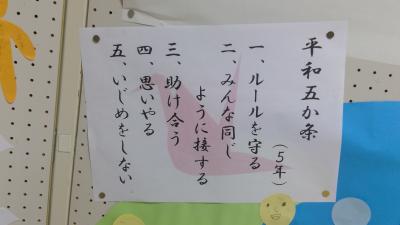 平和五か条
(5年)
一、ルールを守る
二、みんな同じ
ように接する
三、助け合う
四、思いやる
五、いじめをしない